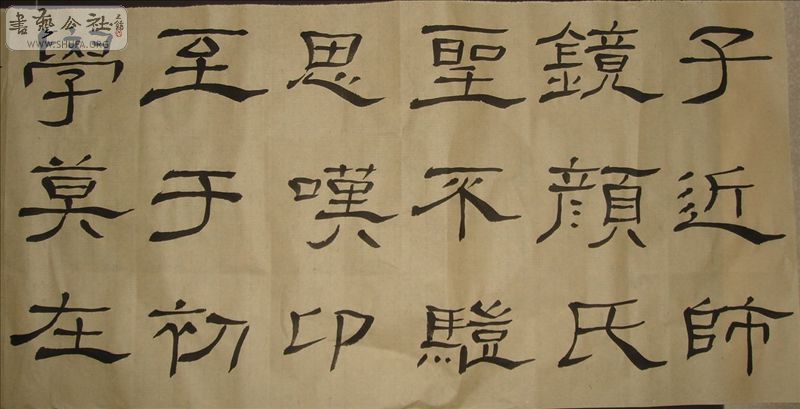 子近師
鏡顏氏
聖不𩥉
思嘆印
至于初
學莫在
書藝公社
WWW.SHUFA.ORG